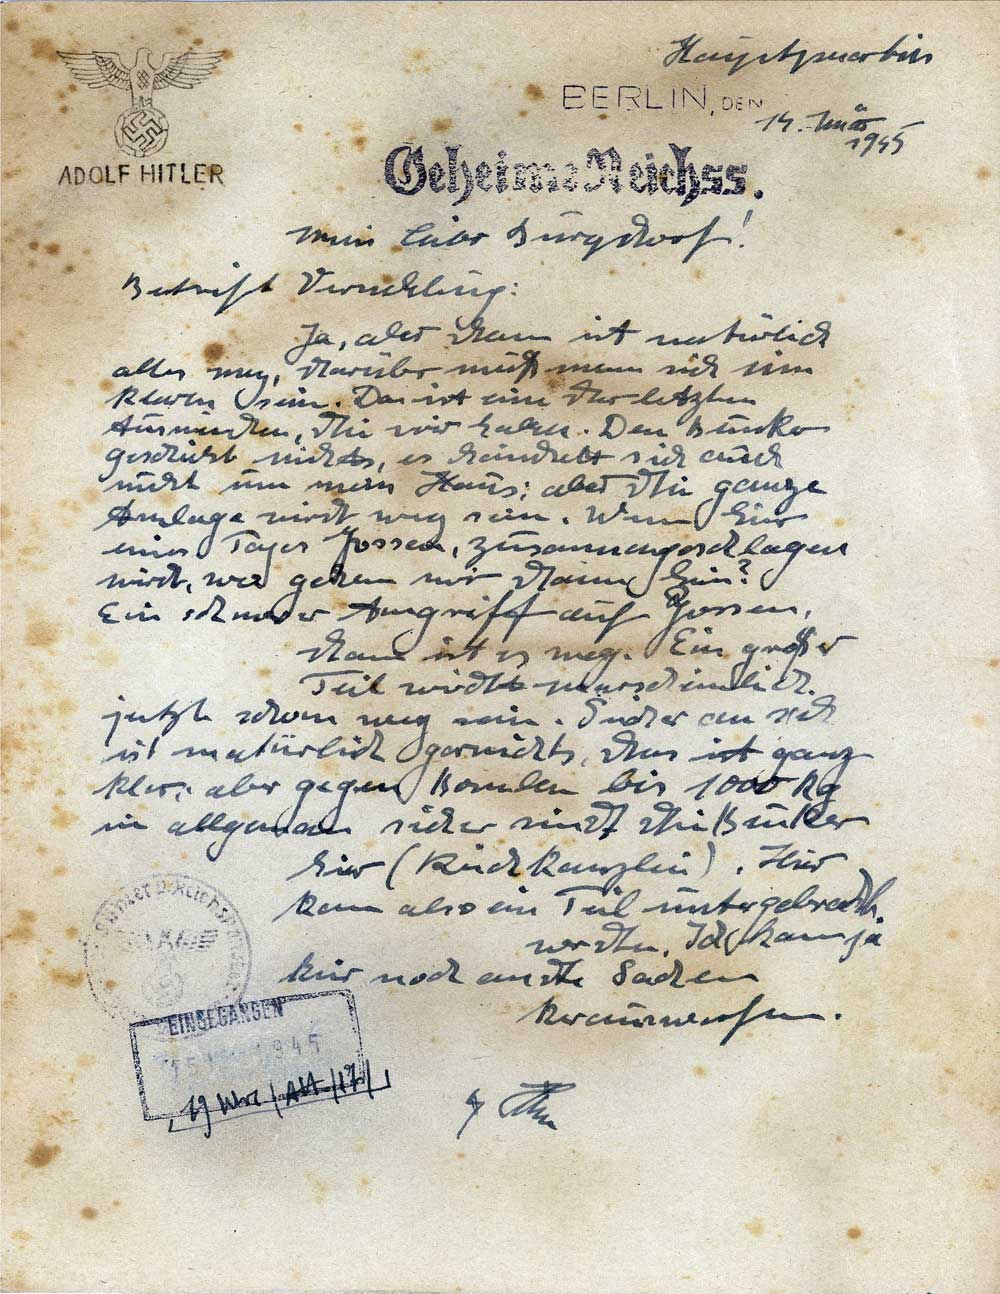 Hauptquartier
BERLIN, DEN
14. März
1945
ADOLF HITLER
Geheime Reichss.
Mein lieber Burgdorf!
Betrifft
Ja, aber dann ist natürlich
alles weg, darüber muß man sich im
klaren sein. Das ist eine der letzten
die wir haben. Den Bunker
nichts, es handelt sich auch
nicht um mein Haus; aber die ganze
Anlage wird weg sein. Wenn hier
eines Tages Zossen, zusammengeschlagen
wird, wo gehen wir dann hin?
Ein schwerer Angriff auf Zossen,
dann ist es weg. Ein großer
Teil wird wahrscheinlich
jetzt schon weg sein. Sicher an sich
ist natürlich garnichts, das ist ganz
klar; aber gegen Bomben bis 1000 kg
im allgemeinen sicher sind die Bunker
hier (Reichkanzlei). Hier
kann also ein Teil untergebracht
werden. Ich kann ja
hier noch andere Sachen
herauswerfen.
EINGEGANGEN
1945